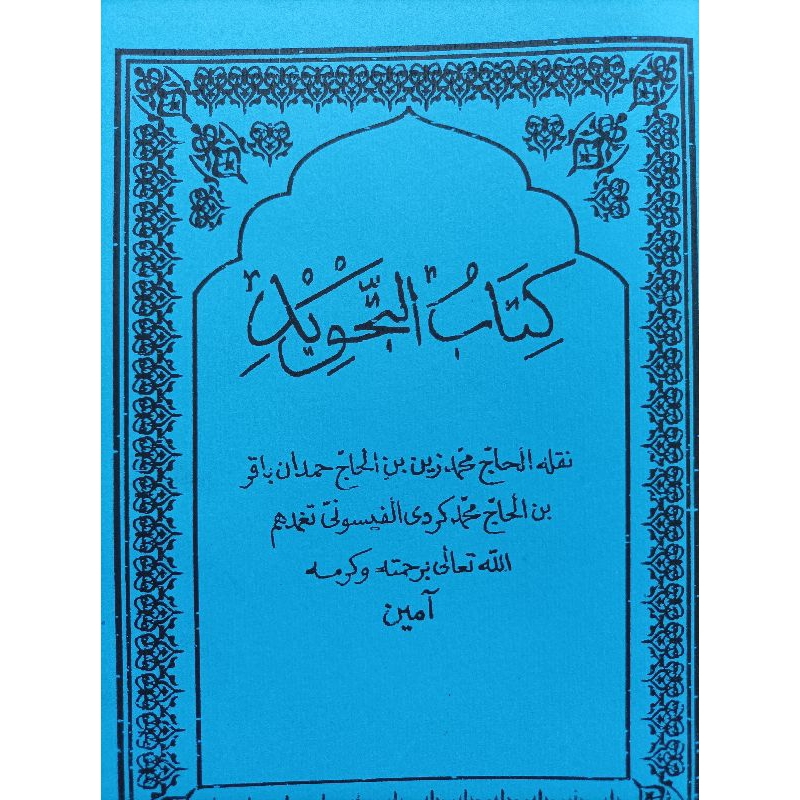 كِتَابُ التَّجْوِيْدِ
نقله الحاجّ محمّد زين بن الحاجّ حمدان باقر
بن الحاجّ محمّد كردى الفيسونيّ تغمدهم
الله تعالى برحمته وكرمه
آمين